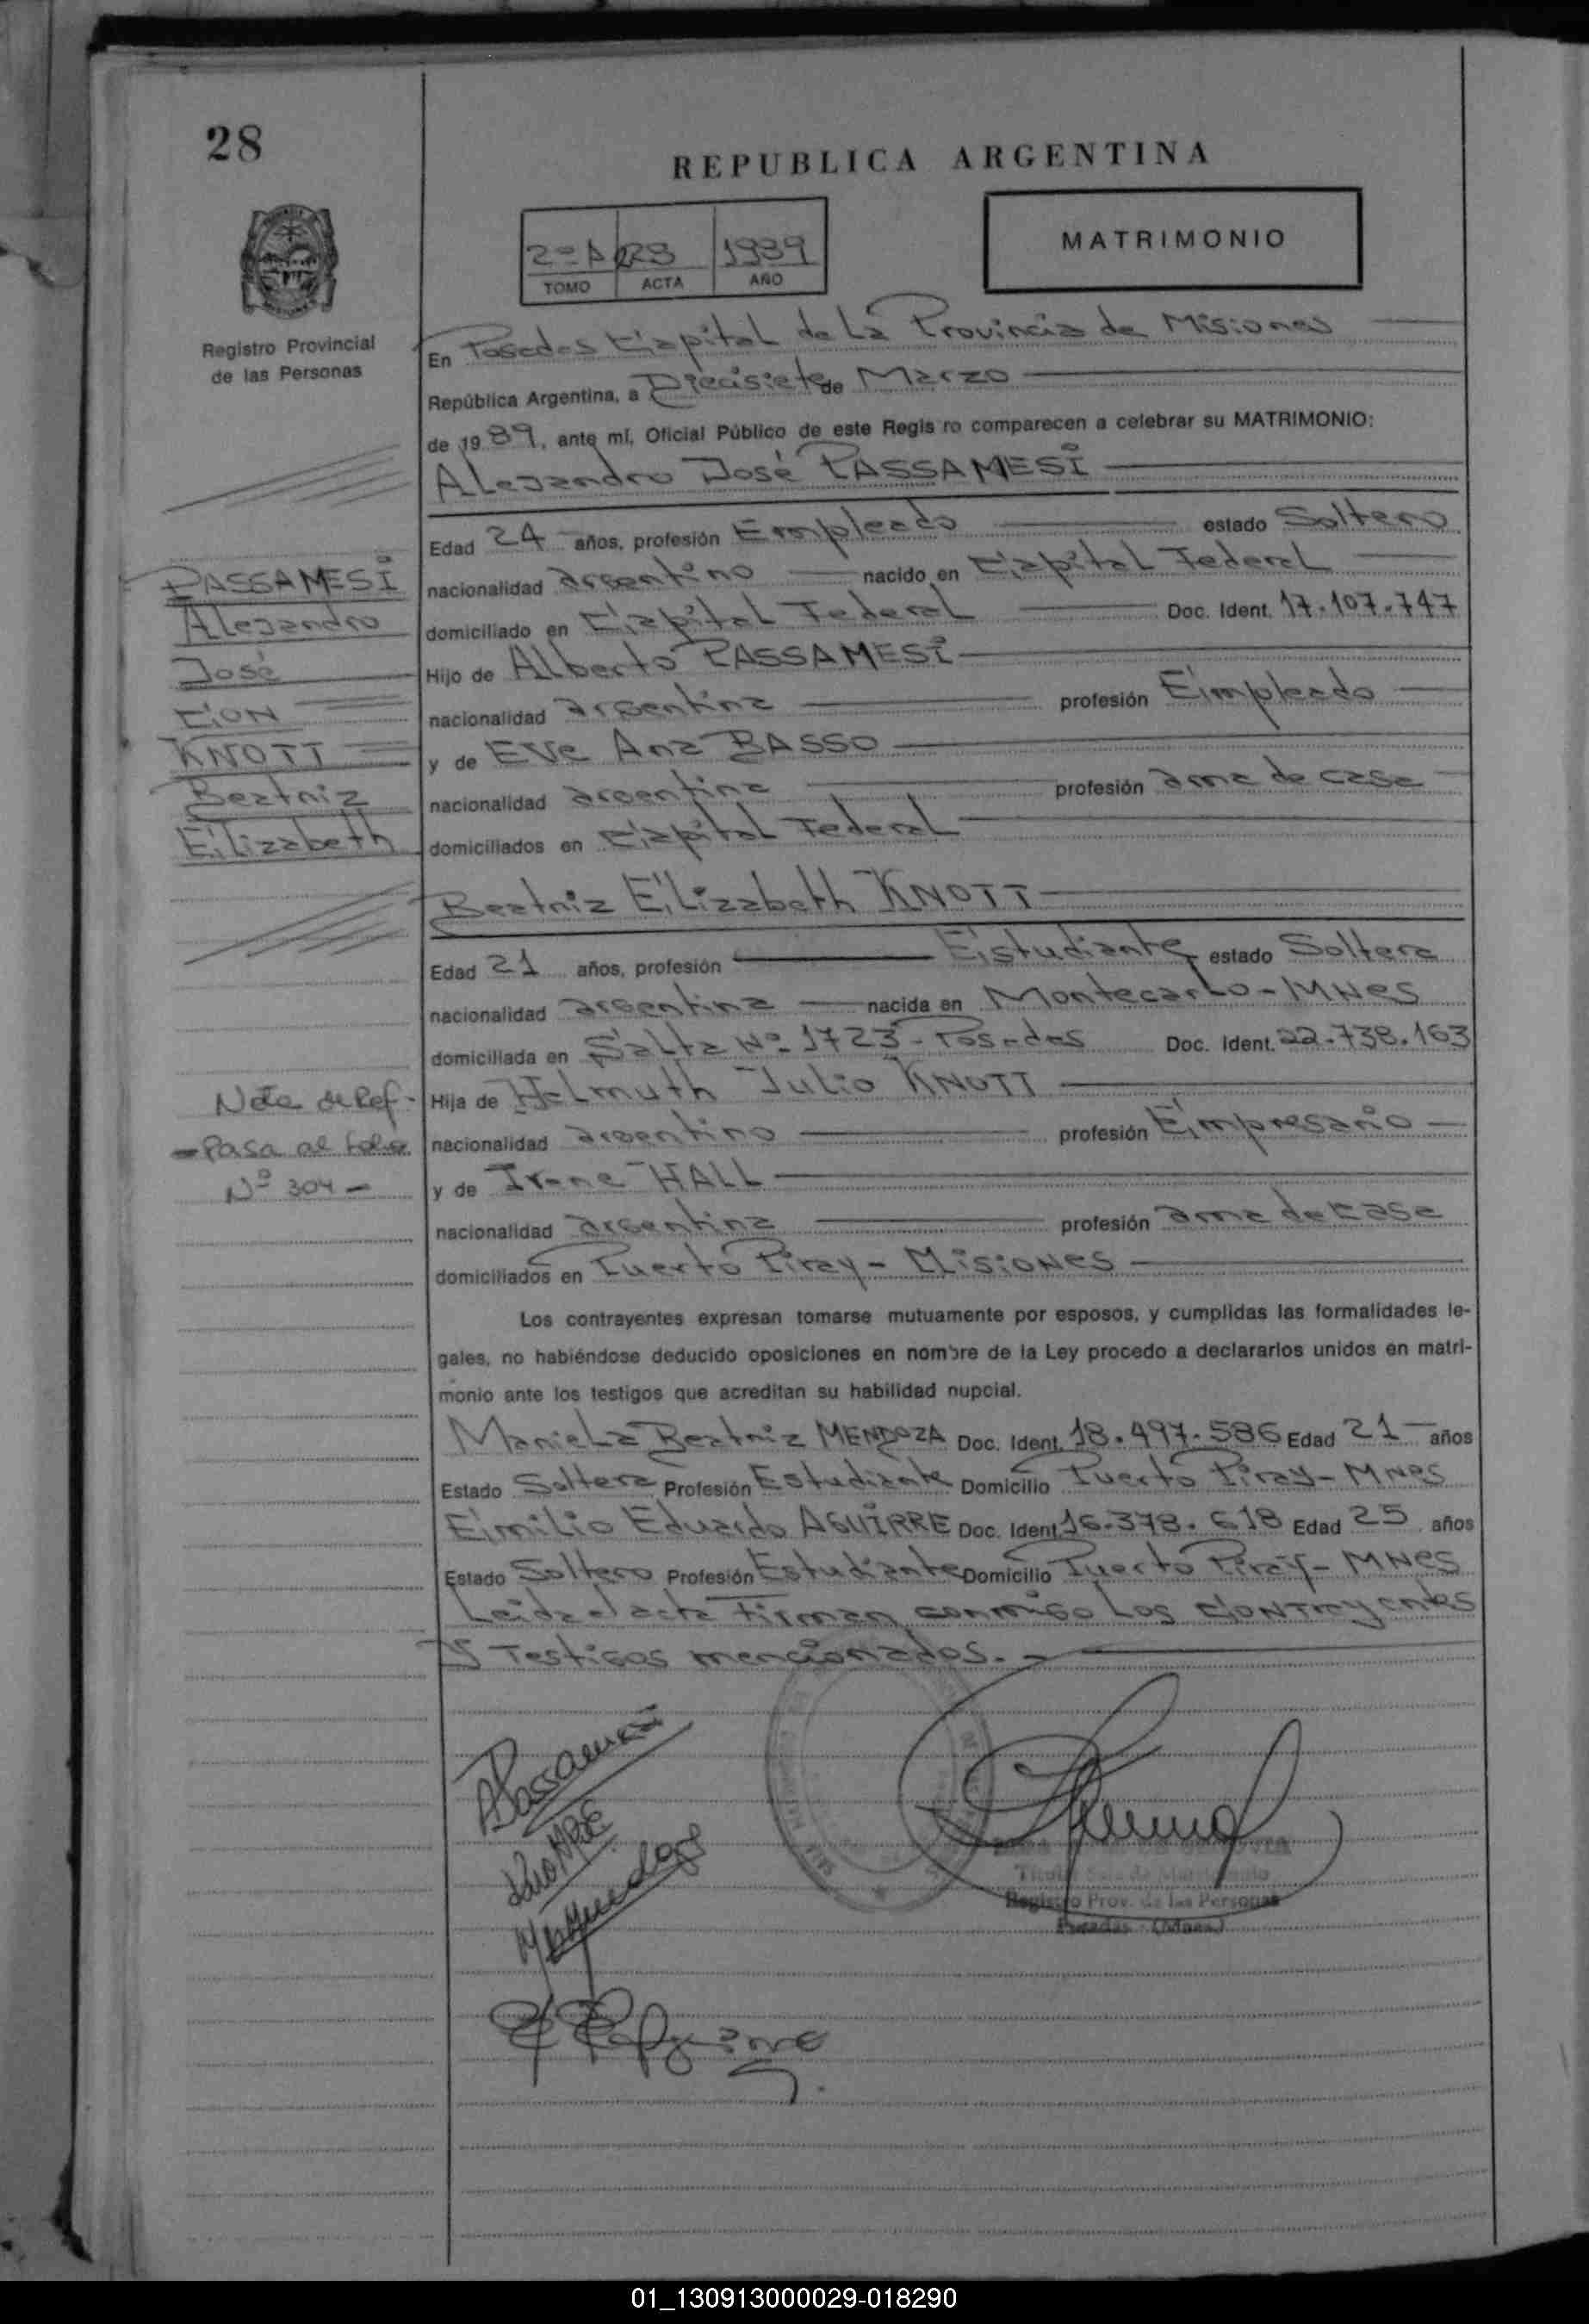 28
REPUBLICA ARGENTINA
MATRIMONIO
2º A 1989
TOMO ACTA AÑO
Registro Provincial
de las Personas
En Posadas Capital de La Provincia de Misiones
República Argentina, a Diecisiete de Marzo
de 1989, ante mí, Oficial Público de este Regis ro comparecen a celebrar su MATRIMONIO:
Alejandro José PASSAMESI
Edad 24 años, profesión Empleado estado Soltero
nacionalidad argentino nacido en Capital Federal
domiciliado en Capital Federal Doc. Ident. 17.107.747
Hijo de Alberto PASSAMESI
nacionalidad argentina profesión Empleado
y de EVe Ana BASSO
nacionalidad argentina profesión ama de casa
domiciliados en Capital Federal
Beatriz Elizabeth KNOTT
Edad 21 años, profesión Estudiante estado Soltera
nacionalidad argentina nacida en Montecarlo-MNes
domiciliada en Salta Nº 1723-Posadas Doc. Ident. 22.738.163
Hija de Helmuth Julio KNOTT
nacionalidad argentino profesión Empresario
y de Irene HALL
nacionalidad argentina profesión ama de casa
domiciliados en Puerto Piray-Misiones
PASSAMESI
Alejandro
José
CON
KNOTT
Beatriz
Elizabeth
Nota de Ref.
-Pasa al folio
Nº 304-
Los contrayentes expresan tomarse mutuamente por esposos, y cumplidas las formalidades le-
gales, no habiéndose deducido oposiciones en nombre de la Ley procedo a declararlos unidos en matri-
monio ante los testigos que acreditan su habilidad nupcial.
Mariela Beatriz MENDOZA Doc. Ident. 18.497.586 Edad 21 años
Estado Soltera Profesión Estudiante Domicilio Puerto Piray-MNes
Emilio Eduardo AGUIRRE Doc. Ident. 16.378.618 Edad 25 años
Estado Soltero Profesión Estudiante Domicilio Puerto Piray-MNes
Leida el acta Firman conmigo Los CONTrayentes
y Testigos mencionados.-
Registro Prov. de las Personas
Posadas - (Mnes.)
01_130913000029-018290